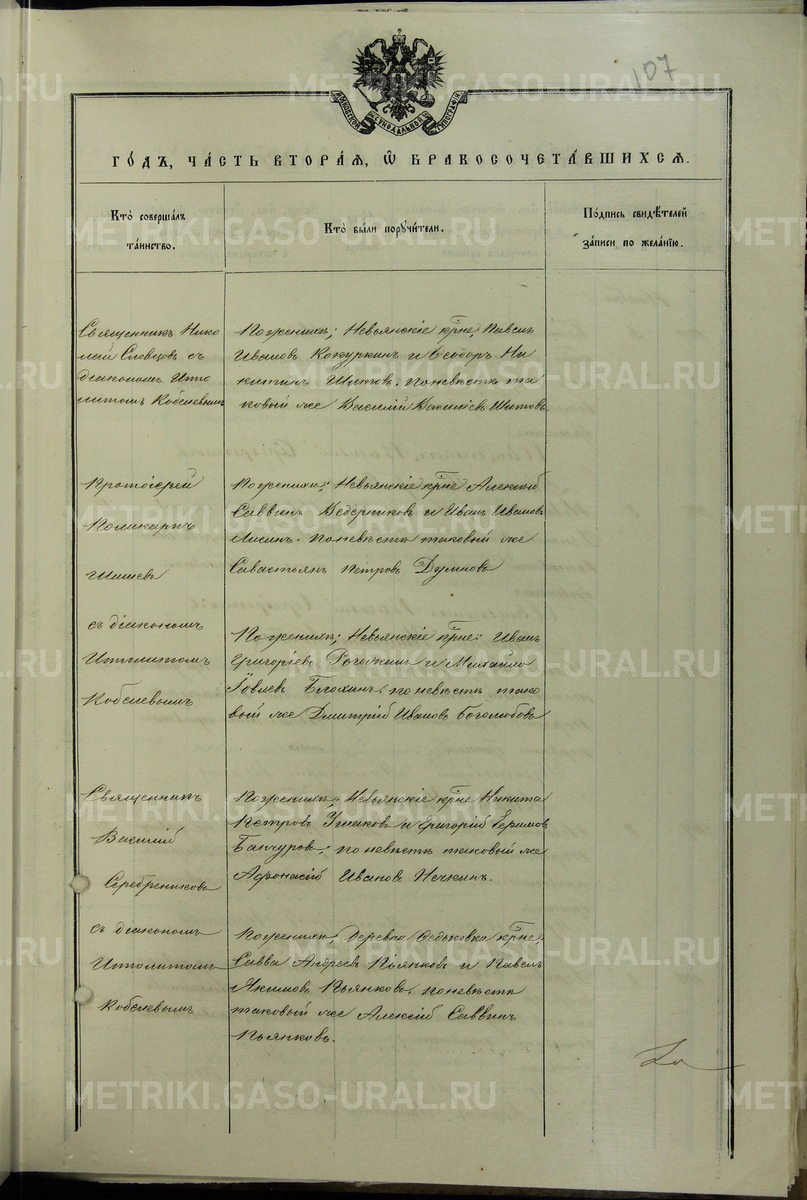 107
МОСКОВСКОЙ СѴНОДАЛЬНОЙ ТИПОГРАФІИ
ГО́ДЪ, ЧА́СТЬ ВТОРА́Ѧ, Ѽ БРАКОСОЧЕТА́ВШИХСѦ.
Кто̀ соверша́лъ
та́инство.
Кто̀ бы́ли порꙋчи́тели.
По́дпись свидѣ́телей
за́писи по жела́нїю.
Священникъ Нико
лай Словцовъ съ
діакономъ Ипо
литомъ Кобелевымъ
По женихѣ; Невьянскіе кр̃не; Павелъ
Ивановъ Кокуркинъ и Ѳеодоръ Ни
китинъ Шитовъ. по невѣстѣ та
ковый же Василій Шитовъ.
Протоіерей
Поликарпъ
съ діакономъ
Иполитомъ
Кобелевымъ.
По женихѣ; Невьянскіе кр̃не Алексій
Саввинъ Ведерниковъ и Иванъ Ивановъ
Лисинъ. по невѣстѣ таковый же
Савастьянъ Петровъ Думновъ
По женихѣ; Невьянскіе кр̃не: Иванъ
Григоріевъ Рогожкинъ и Михайло
Іовлевъ Блохинъ. по невѣстѣ тако
вый же Дмитрій Ивановъ Боголюбовъ
Священникъ
Василій
Серебренниковъ
съ діакономъ
Иполитомъ
Кобелевымъ
По женихѣ; Невьянскіе кр̃не Никита
Петровъ Ушаковъ и Григорій Ефимовъ
по невѣстѣ таковый же
Афонасій Ивановъ Нечкинъ.
По женихѣ; Деревни Ѳедьковки кр̃не
Савва Андреевъ Пьянковъ и Павелъ
Якимовъ Пьянковъ. по невѣстѣ
таковый же Алексій Саввинъ
Пьянковъ.
METRIKI.GASO-URAL.RU